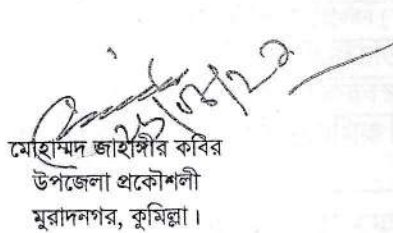 মোহাম্মদ জাহাঙ্গীর কবির
উপজেলা প্রকৌশলী
মুরাদনগর, কুমিল্লা।